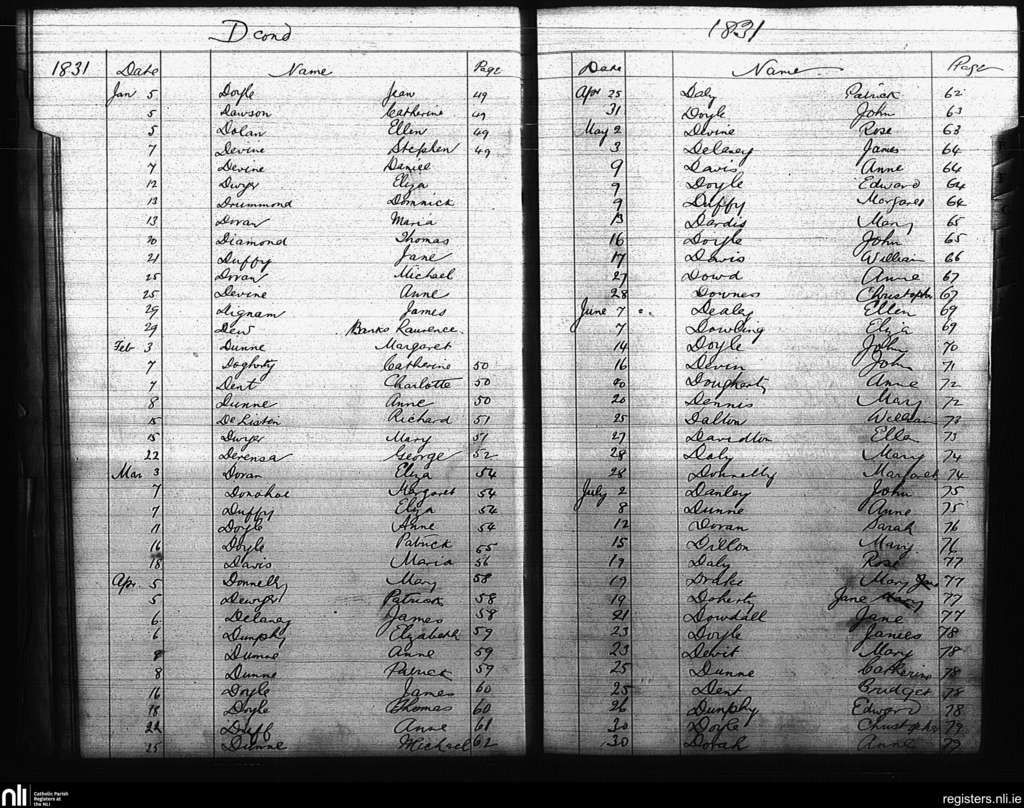 D cond
1831 Date Name Page
Jan 5 Doyle Jean 49
5 Dawson Catherine 49
5 Dolan Ellen 49
7 Devine Stephen 49
7 Devine Daniel
12 Dwyer Eliza
13 Drummond Dominick
13 Doran Maria
20 Diamond Thomas
21 Duffy Jane
25 Doran Michael
25 Devine Anne
29 Dignam James
29 Dew Banks Laurence
Feb 3 Dunne Margaret
7 Dogherty Catherine 50
7 Dent Charlotte 50
8 Dunne Anne 50
15 De Liston Richard 51
15 Dwyer Mary 51
22 Derensa George 52
Mar 3 Doran Eliza 54
7 Donahoe Margaret 54
7 Duffy Eliza 54
11 Doyle Anne 54
16 Doyle Patrick 55
18 Davis Maria 56
Apr. 5 Donnelly Mary 58
5 Dewyer Patrick 58
6 Delaney James 58
6 Dunphy Elizabeth 59
8 Dunne Anne 59
8 Dunne Patrick 59
16 Doyle James 60
18 Doyle Thomas 60
22 Druff Anne 61
25 Dunne Michael 62
1831
Date Name Page
Apr 25 Daly Patrick 62
31 Doyle John 63
May 2 Divine Rose 63
3 Delaney James 64
9 Davis Anne 64
9 Doyle Edward 64
9 Duffy Margaret 64
13 Dardis Mary 65
16 Doyle John 65
17 Davis William 66
27 Dowd Anne 67
28 Downes Christopher 67
June 7 Dealey Ellen 69
7 Dowling Eliza 69
14 Doyle John 70
16 Devin John 71
20 Dougherty Anne 72
20 Dennis Mary 72
25 Dalton William 73
27 Davidton Ellen 73
28 Daly Mary 74
28 Donnelly Margaret 74
July 2 Danley John 75
8 Dunne Anne 75
12 Doran Sarah 76
15 Dillon Mary 76
19 Daly Rose 77
19 Drake Mary Jane 77
19 Doherty Jane 77
21 Dowdall Jane 77
23 Doyle James 78
23 Dewit Mary 78
25 Dunne Catherine 78
25 Dent Bridget 78
26 Dunphy Edward 78
30 Doyle Christopher 79
30 Dorah Anne 79
nli Catholic Parish
Registers at
the NLI
registers.nli.ie